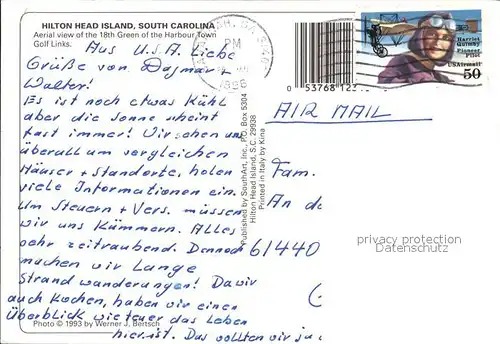 HILTON HEAD ISLAND, SOUTH CAROLINA
Aerial view of the 18th Green of the Harbour Town
Golf Links.
Aus U.S.A. Liebe
Grüße von Dagmar,
Walter!
Es ist noch etwas kühl
aber die Sonne scheint
fast immer! Wir sehen uns
überall um vergleichen
Häuser + Standorte, holen
viele Informationen ein.
Um Steuern + Vers. müssen
wir uns kümmern. Alles
sehr zeitraubend. Dennoch
machen wir lange
Strandwanderungen! Da wir
auch kochen, haben wir einen
Überblick wie teuer das Leben
hier ist. Das sollten wir ja
Photo © 1993 by Werner J. Bertsch
Published by SouthArt, Inc., P.O. Box 5304
Hilton Head Island, S.C. 29938
Printed in Italy by Kina
PM
1996
0 53768 123
Harriet
Quimby
Pioneer
Pilot
USAirmail
50
AIR MAIL
Fam.
An d
61440
privacy protection
DANIBUM